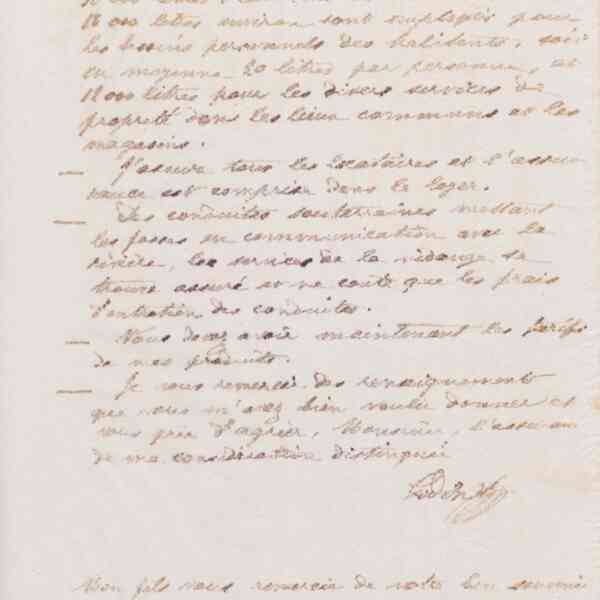 18 000 litres environ sont employés pour
les besoins personnels des habitants, soit
en moyenne 20 litres par personne, et
12 000 litres pour les divers services de
propreté dans les lieux communs et les
magasins.
— J'assure tous les locataires et l'assu-
rance est comprise dans le loyer.
— Des conduites souterraines mettant
les fosses en communication avec la
rivière, les services de la vidange se
trouve assuré et ne coute que les frais
d'entretien des conduites.
— Vous devez avoir maintenant les tarifs
de nos produits.
— Je vous remercie des renseignements
que vous m'avez bien voulu donner et
vous prie d'agréer, Monsieur, l'assuran
de ma considération distinguée
Mon fils vous remercie de votre bon souvenir